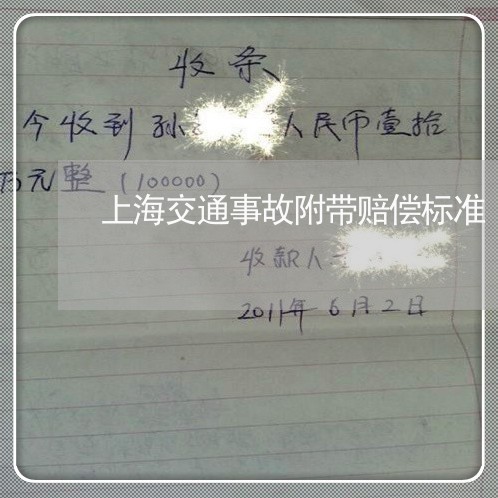 收条
今收到孙 人民币壹拾
万元整(100000)
上海交通事故附带赔偿标准
收款人
2011年6月2日